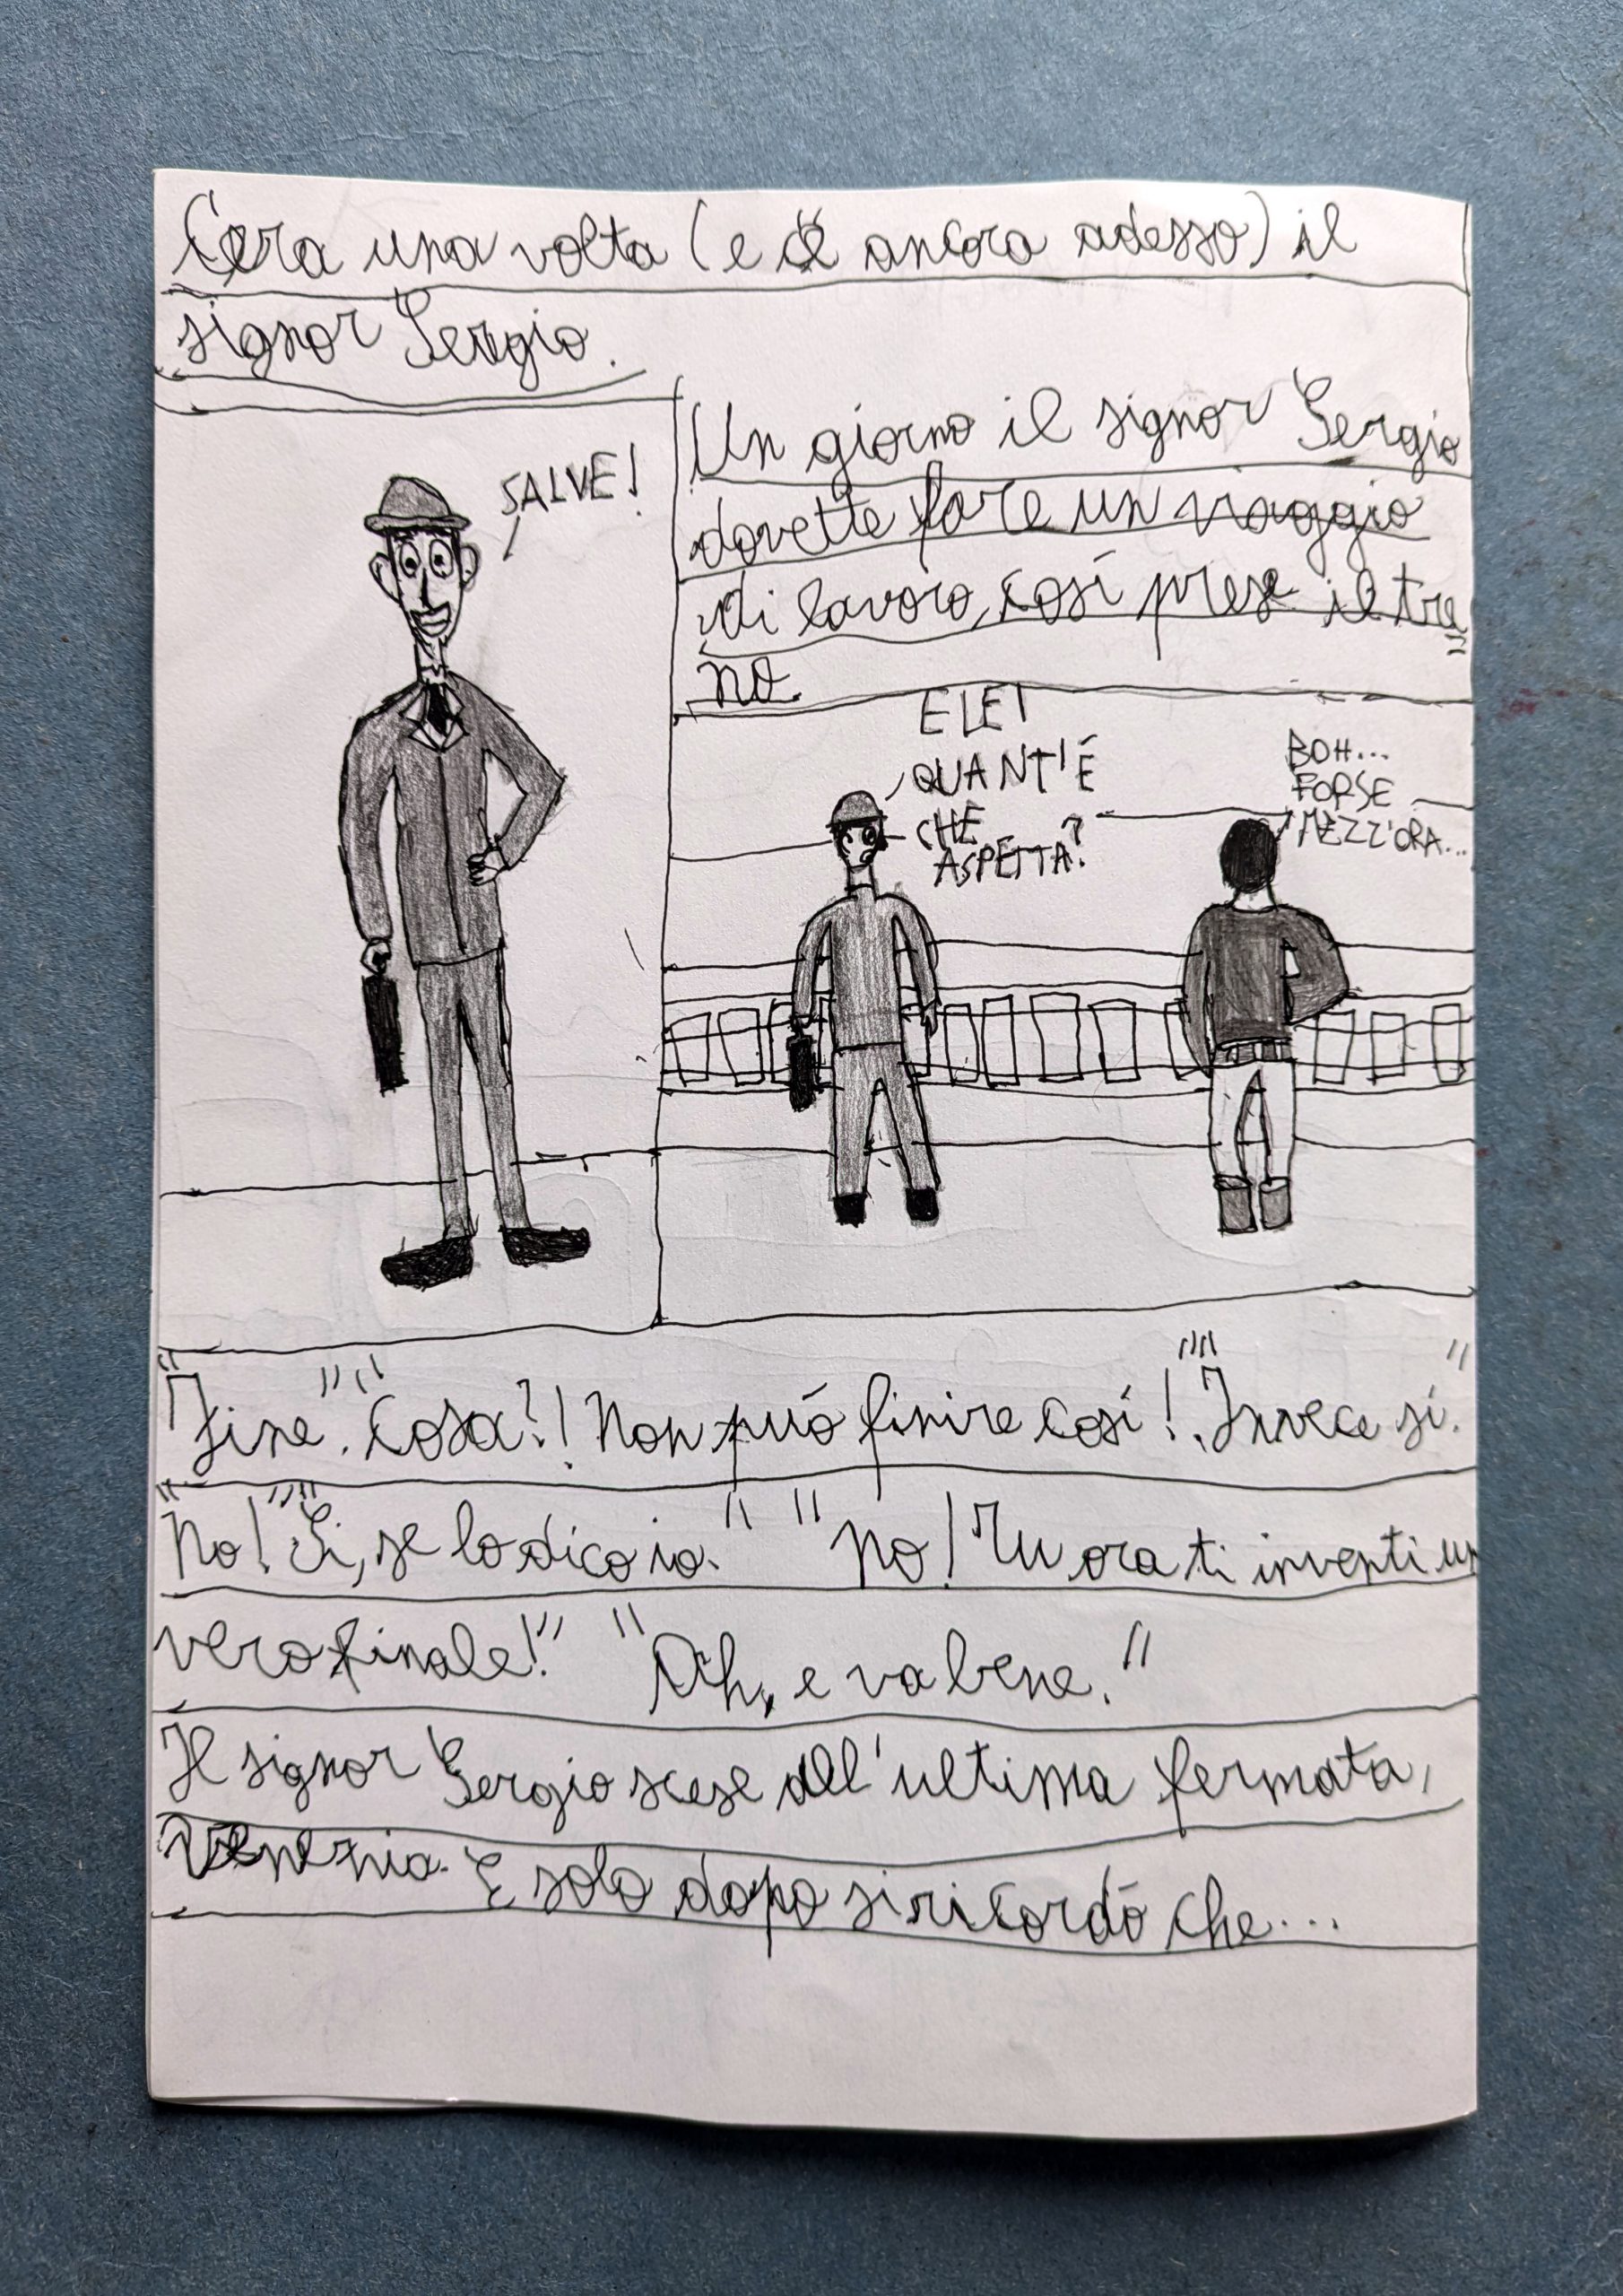 C'era una volta (e c'è ancora adesso) il
signor Sergio.
SALVE!
Un giorno il signor Sergio
dovette fare un viaggio
di lavoro, così prese il tre=
no.
E LEI
QUANT'È
CHE
ASPETTA?
BOH...
FORSE
MEZZ'ORA...
"Fine". "Cosa?! Non può finire così!". "Invece sì."
"No!" "Sì, se lo dico io." "No! Tu ora ti inventi un
vero finale!" "Oh, e va bene."
Il signor Sergio scese all'ultima fermata,
Venezia. E solo dopo si ricordò che...